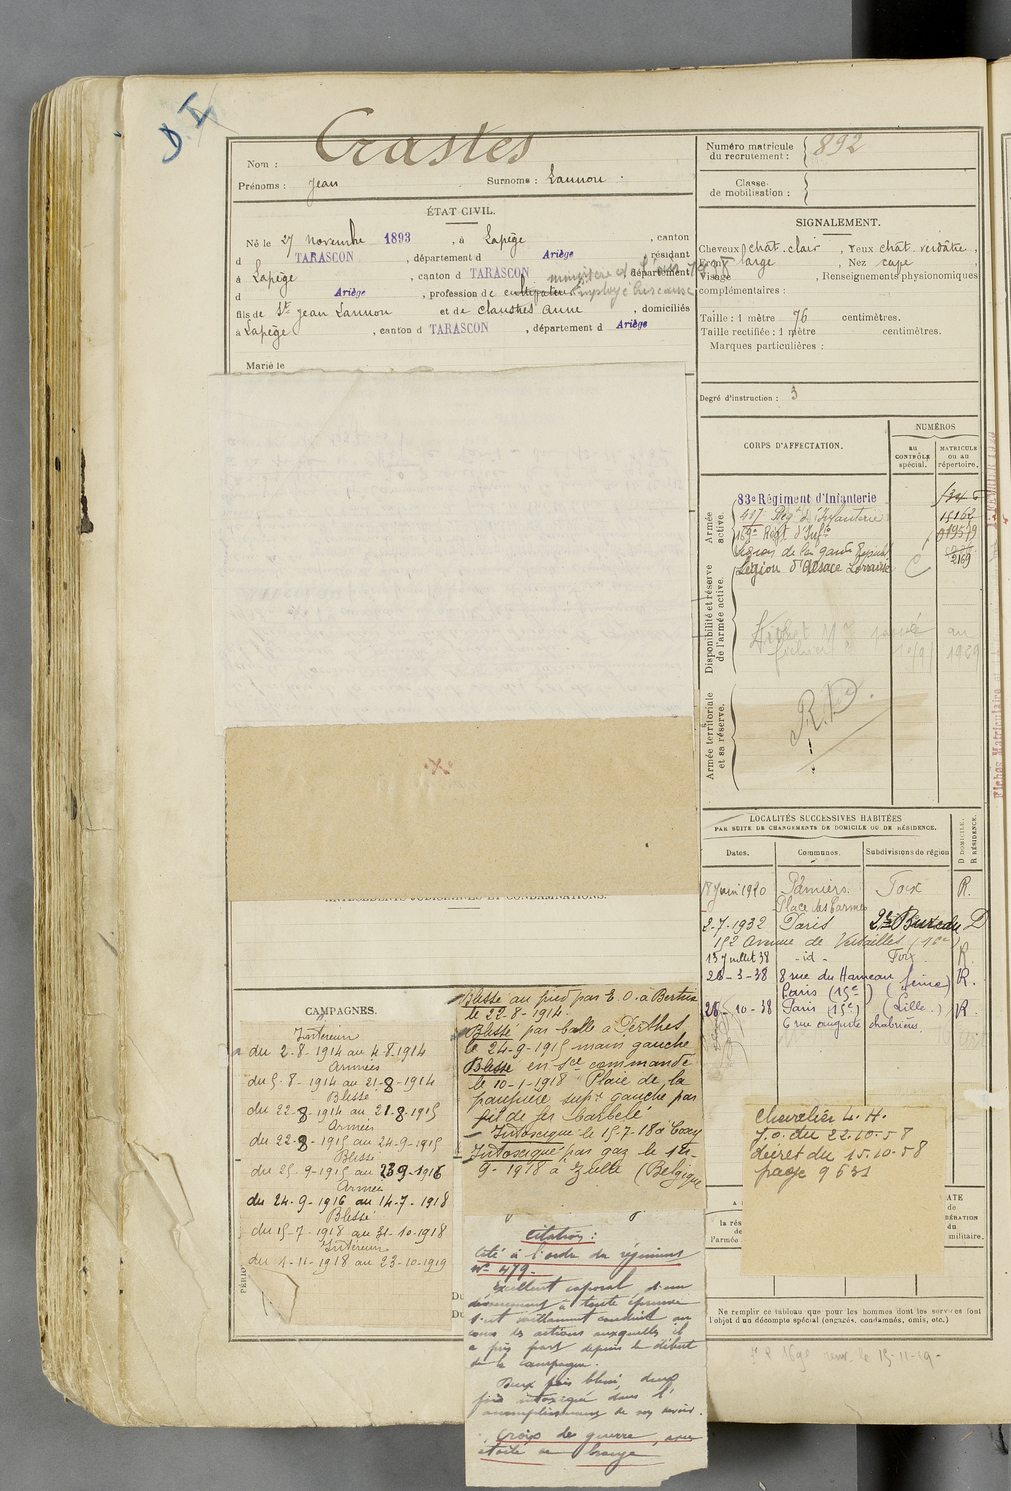 D I
Nom : Crastes
Prénoms : Jean Surnoms : Lannou
ÉTAT CIVIL.
Né le 27 novembre 1893, à Lapège, canton
d TARASCON, département d Ariège, résidant
à Lapège, canton d TARASCON, département
d Ariège, profession de cultivateur
fils de Jean Lannou et de Anne, domiciliés
à Lapège, canton d TARASCON, département d Ariège
Marié le
Numéro matricule
du recrutement : 892
Classe
de mobilisation :
SIGNALEMENT.
Cheveux chât. clair, Yeux chât. verdâtre,
Front large, Nez
Visage , Renseignements physionomiques
complémentaires :
Taille : 1 mètre 76 centimètres.
Taille rectifiée : 1 mètre centimètres.
Marques particulières :
Degré d'instruction : 3
CORPS D'AFFECTATION.
NUMÉROS
au
CONTRÔLE
spécial.
MATRICULE
ou au
répertoire.
Armée
active.
83e Régiment d'Infanterie
417e Régt d'Infanterie 15162
Régt d'Infie
Légion de la garde
Légion d'Alsace Lorraine 2169
Disponibilité et réserve
de l'armée active.
Armée territoriale
et sa réserve.
R.D.
LOCALITÉS SUCCESSIVES HABITÉES
PAR SUITE DE CHANGEMENTS DE DOMICILE OU DE RÉSIDENCE.
Dates.
Communes.
Subdivisions de région
D DOMICILE.
R RÉSIDENCE.
18 juin 1920 Pamiers. Foix R.
Place des Carmes
2-7-1932 Paris 2e Bureau D
152 Avenue de Versailles (16e)
13 juillet 38 - id - Foix R.
26-3-38 8 rue du Hameau (Seine) R.
Paris (15e)
28-10-38 Paris (15e) R
6 rue auguste chabrières
ANTÉCÉDENTS JUDICIAIRES ET CONDAMNATIONS.
CAMPAGNES.
Intérieur
du 2-8-1914 au 4.8.1914
Armées
du 5-8-1914 au 21-8-1914
Blessé
du 22-8-1914 au 21-8-1915
Armées
du 22-8-1915 au 24-9-1915
Blessé
du 25-9-1915 au 23-9-1916
Armées
du 24-9-1916 au 14-7-1918
Blessé
du 15-7-1918 au 31-10-1918
Intérieur
du 1-11-1918 au 23-10-1919
Blessé au pied par E.O. à Bertrix
le 22-8-1914.
Blessé par balle à Perthes
le 24-9-1915 main gauche
Blessé en sce commandé
le 10-1-1918 Plaie de la
paupière supre gauche par
fil de fer barbelé
Intoxiqué le 15-7-18 à
Intoxiqué par gaz le
9-1918 à Zulte (Belgique
Citation :
Cité à l'ordre du régiment
No 479.
Excellent caporal d'un
dévouement à toute épreuve
s'est vaillamment conduit au
cours des actions auxquelles il
a pris part depuis le début
de la campagne.
Deux fois blessé, deux
fois intoxiqué dans l'
accomplissement de son devoir.
Croix de guerre avec
étoile de bronze
Chevalier L. H.
J.O. du 22.10.58
décret du 15.10.58
page 9631
Ne remplir ce tableau que pour les hommes dont les services font
l'objet d'un décompte spécial (engagés, condamnés, omis, etc.)